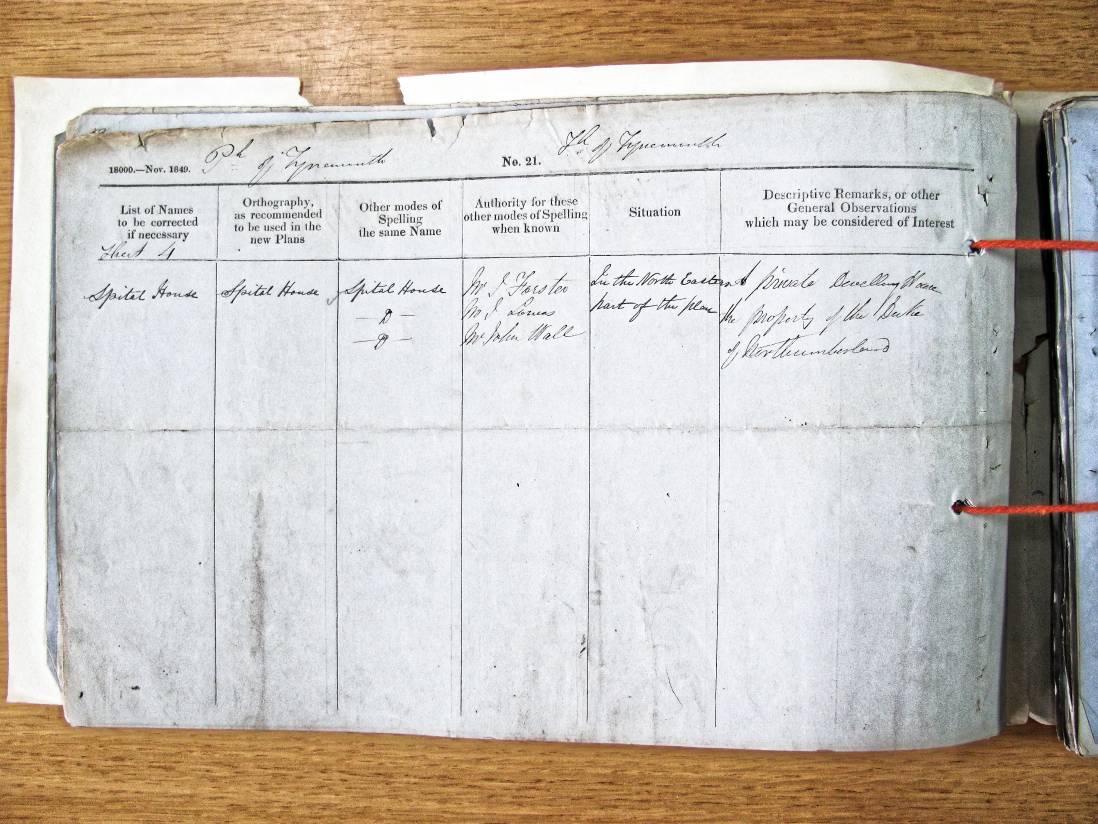 18000.—Nov. 1849. Ph of Tynemouth No. 21. Th of Tynemouth
List of Names
to be corrected
if necessary
Orthography,
as recommended
to be used in the
new Plans
Other modes of
Spelling
the same Name
Authority for these
other modes of Spelling
when known
Situation
Descriptive Remarks, or other
General Observations
which may be considered of Interest
Sheet 4
Spital House
Spital House
Spital House
—D—
—D—
Mr J Forster
Mr J
Mr John Wall
In the North Eastern
part of the plan
A private Dwelling House
the property of the Duke
of Northumberland